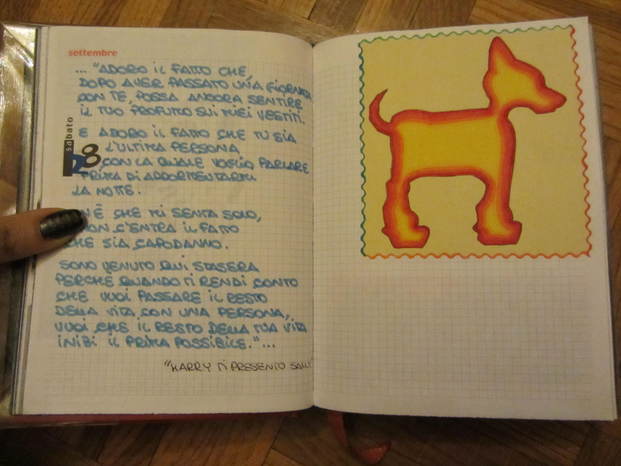 settembre
... "ADORO IL FATTO CHE,
DOPO AVER PASSATO UNA GIORNATA
CON TE, POSSA ANCORA SENTIRE
IL TUO PROFUMO SUI MIEI VESTITI.
E ADORO IL FATTO CHE TU SIA
L'ULTIMA PERSONA
CON LA QUALE VOGLIO PARLARE
PRIMA DI ADDORMENTARMI
LA NOTTE.
sabato
8
È CHE MI SENTA SOLO,
NON C'ENTRA IL FATTO
CHE SIA CAPODANNO.
SONO VENUTO QUI STASERA
PERCHÉ QUANDO TI RENDI CONTO
CHE VUOI PASSARE IL RESTO
DELLA VITA CON UNA PERSONA,
VUOI CHE IL RESTO DELLA TUA VITA
INIZI IL PRIMA POSSIBILE." ...
"HARRY TI PRESENTO SALLY"